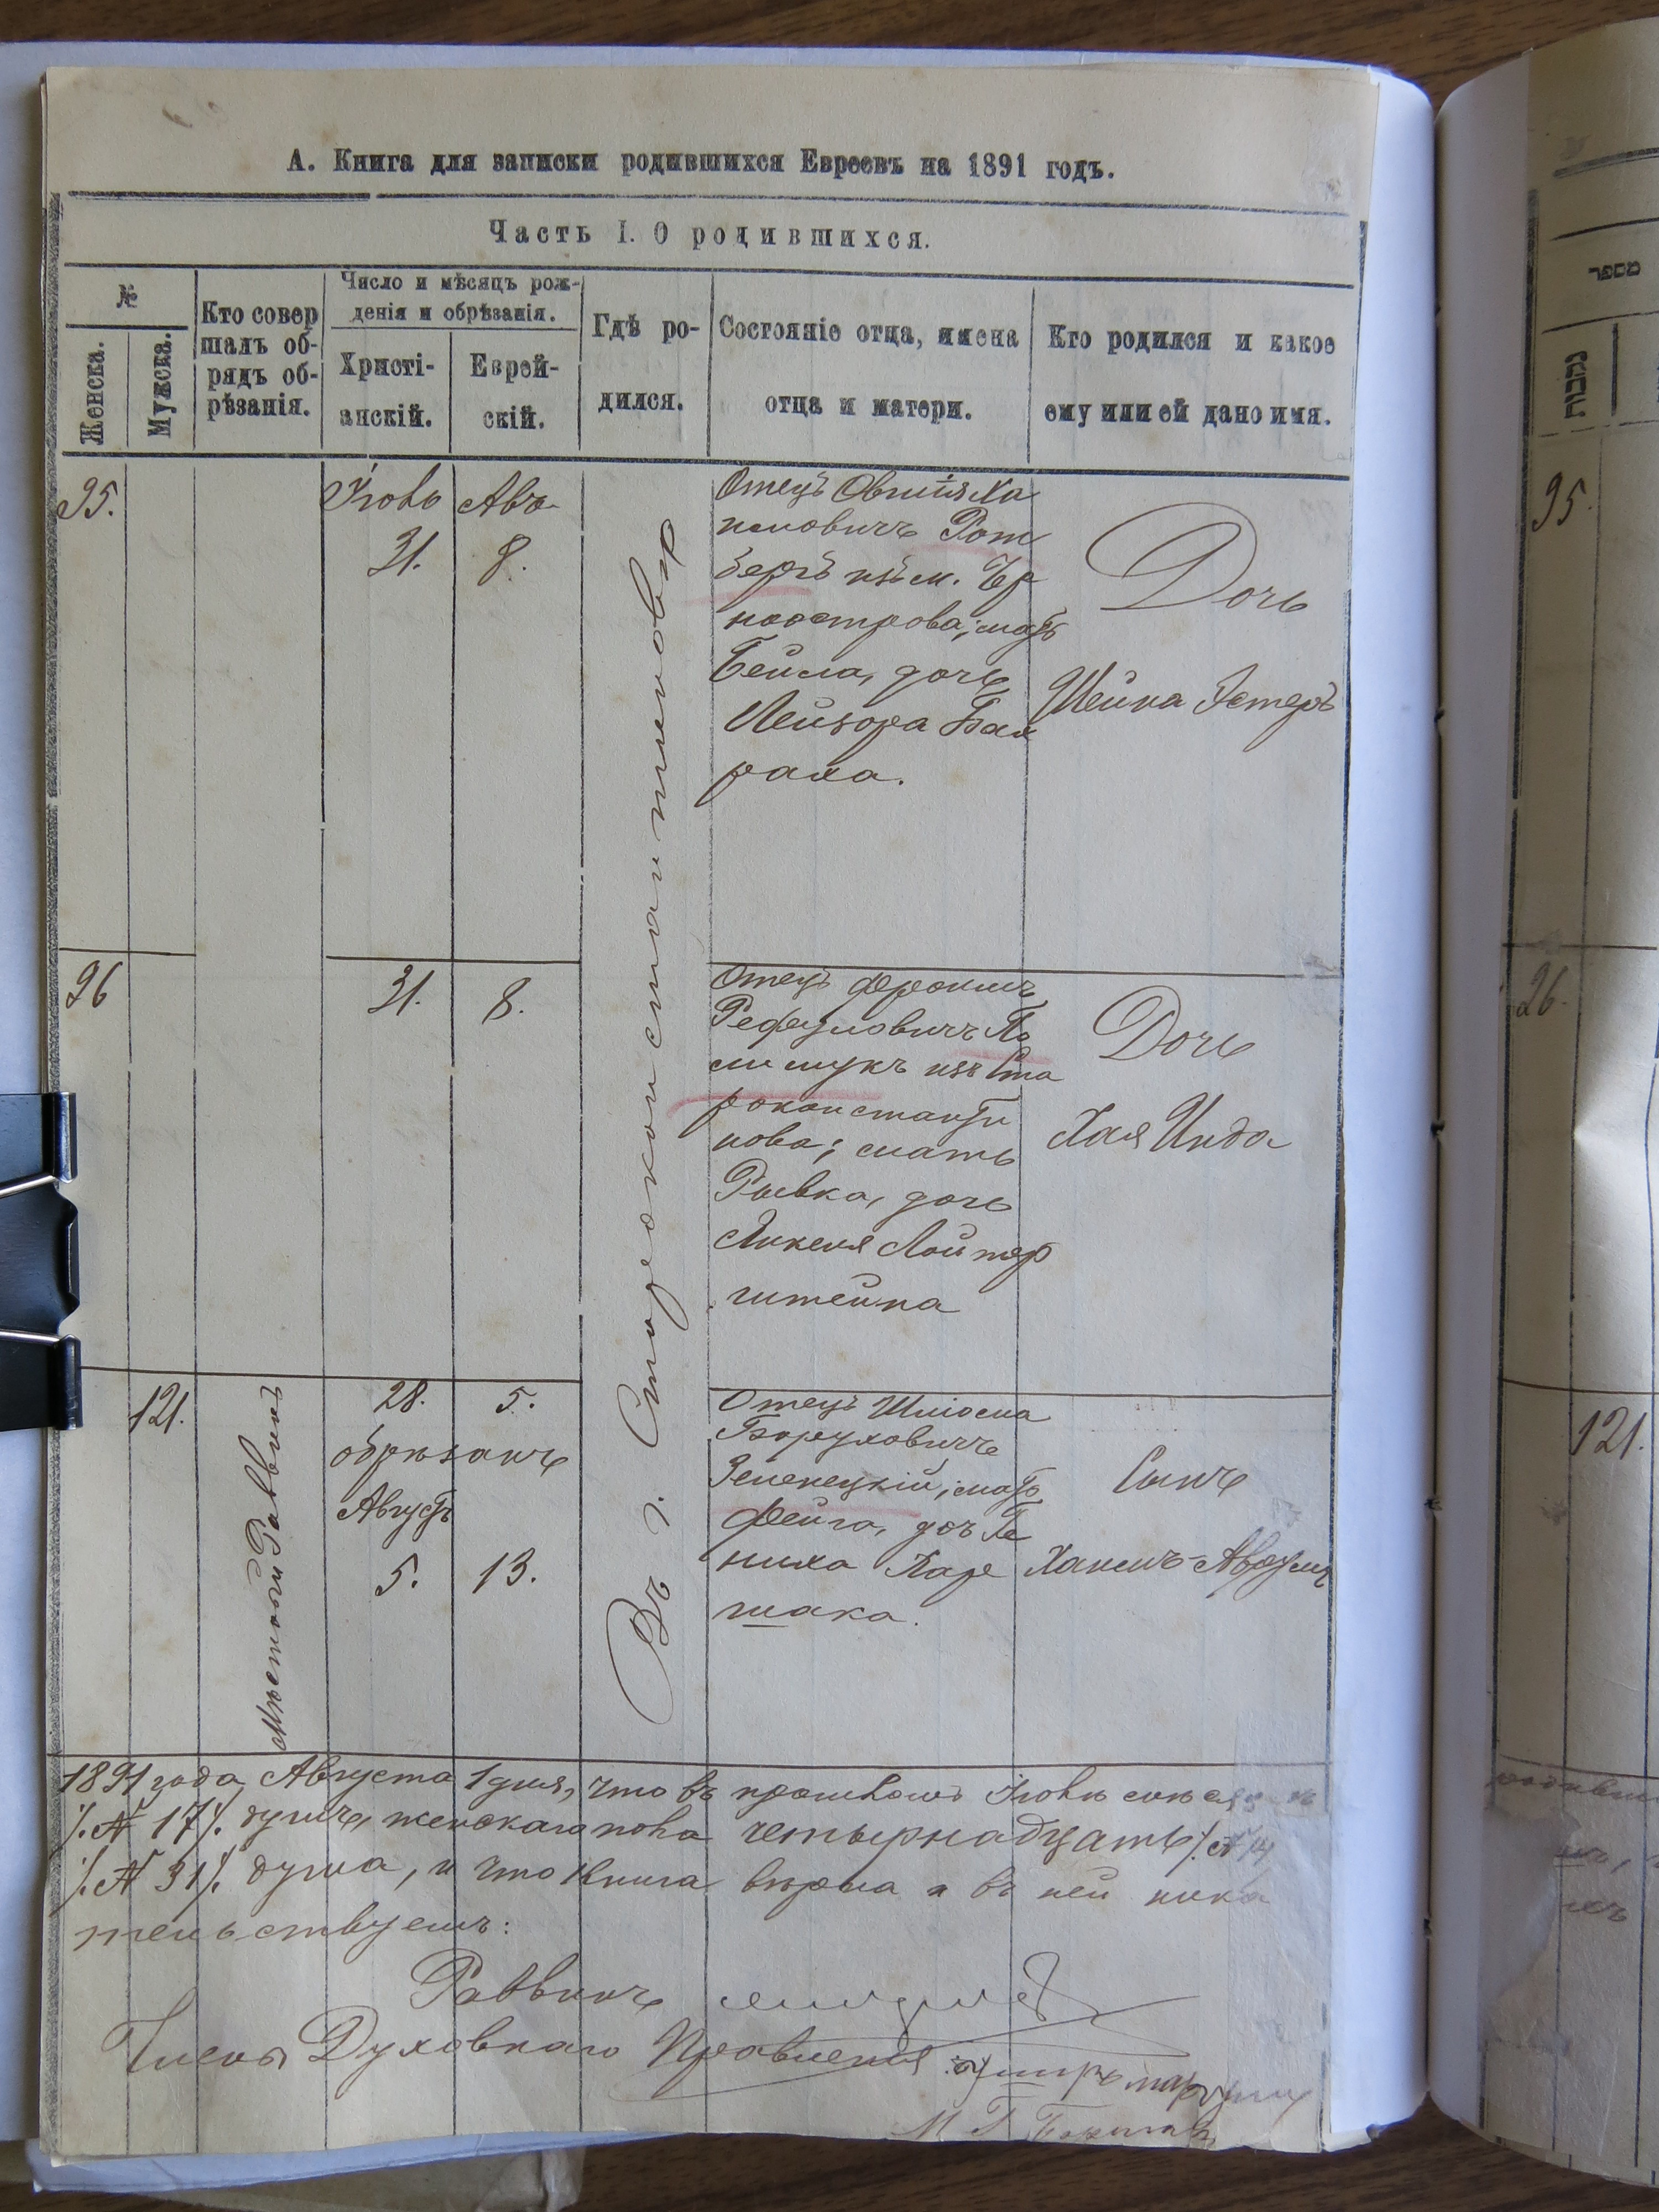 А. Книга для записки родившихся Евреевъ на 1891 годъ.
Часть I. О родившихся.
№
Женска.
Мужска.
Кто совер
шалъ об-
рядъ об-
рѣзанія.
Число и мѣсяцъ рож-
денія и обрѣзанія.
Христі-
анскій.
Еврей-
скій.
Гдѣ ро-
дился.
Состояніе отца, имена
отца и матери.
Кто родился и какое
ему или ей дано имя.
95.
Іюль
31.
Авъ
8.
Въ г. Староконстантиновѣ
Отецъ Овшія Ха
имовичъ Рот
бергъ изъ м. Чер
ноострова; мать
Бейла, дочь
Лейзора Бах
раха.
Дочь
Шейна Эстеръ
96
31.
8.
Отецъ Фроимъ
Рефуловичъ По
лищукъ изъ Ста
роконстанти
нова; мать
Рывка, дочь
Янкеля Лойтер
штейна
Дочь
Хая Инда
121.
Мѣстный Раввинъ
28.
5.
обрѣзанъ
Августъ
5.
13.
Отецъ Шліома
Боруховичъ
Зеленецкій; мать
Фейга, дочь Ге
ниха Пар
шака.
Сынъ
Хаимъ-Аврумъ
1891 года Августа 1 дня, что въ прошломъ Іюлѣ
№ 17 душъ, женскаго пола четырнадцать № 14
№ 31 душа, и что книга вѣрна и въ ней ника
тельствуемъ:
Раввинъ
Члены Духовнаго Правленія
95.
26.
121.